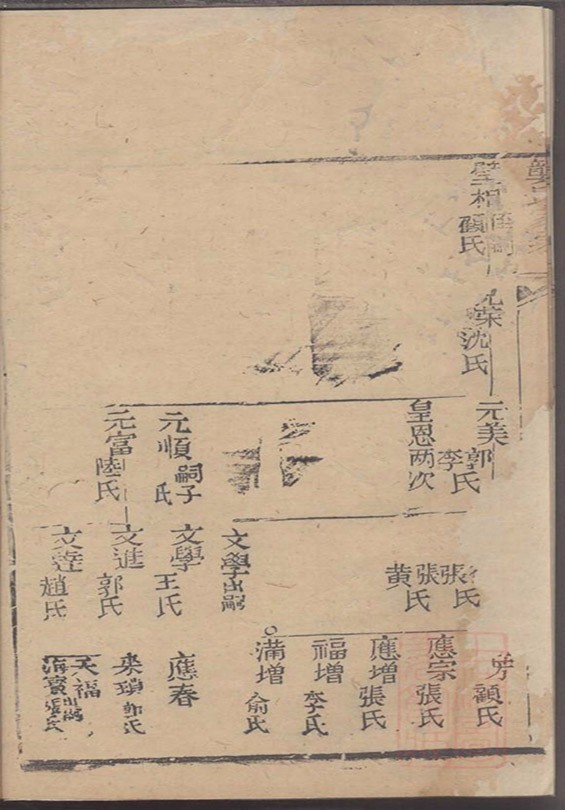 龔氏
璧相
顧氏
元荣
沈氏
元美
郭氏
李
皇恩两次
元順
嗣子
氏
元富
陸氏
張氏
張氏
黄
文學
出嗣
文學
王氏
文進
郭氏
文達
趙氏
顧氏
應宗
張氏
應增
張氏
福增
李氏
满增
俞氏
應春
來瑣
郭氏
天福
出嗣
海寳
張氏